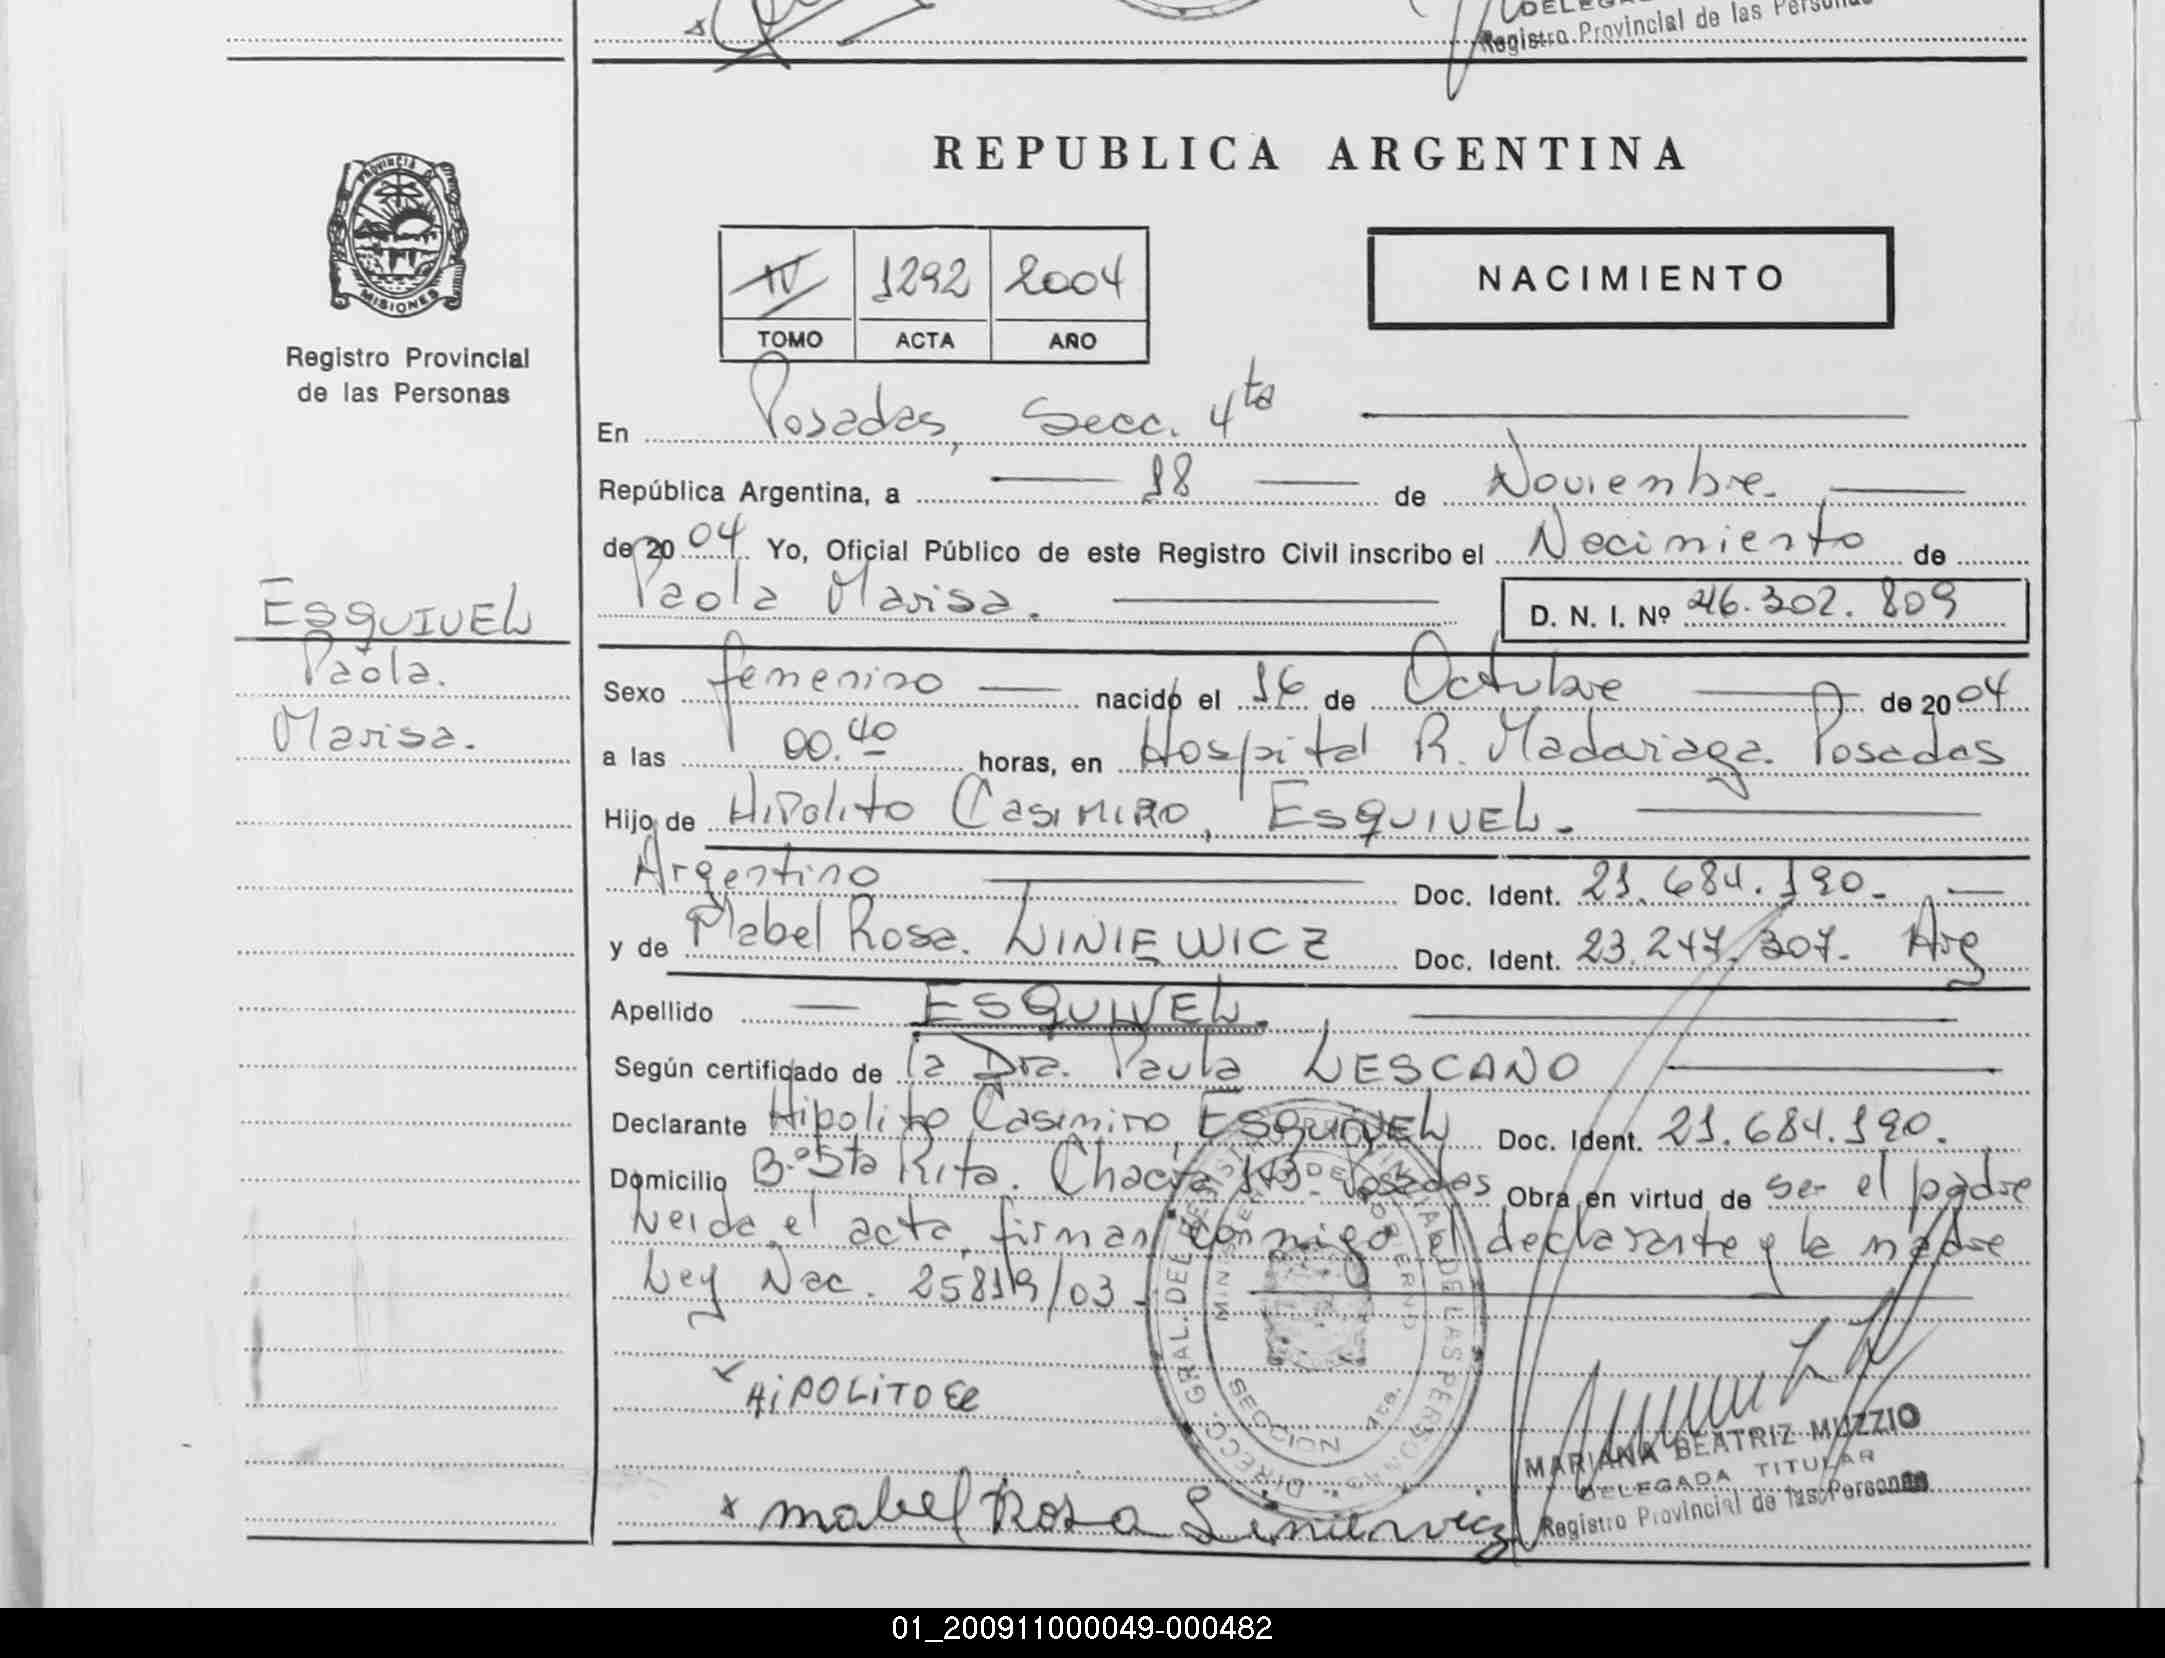 Registro Provincial de las Personas
REPUBLICA ARGENTINA
PROVINCIA DE
MISIONES
Registro Provincial
de las Personas
IV 1292 2004
TOMO ACTA AÑO
NACIMIENTO
En Posadas, Secc. 4ta
República Argentina, a 18 de Noviembre
de 2004 Yo, Oficial Público de este Registro Civil inscribo el Nacimiento de
Paola Marisa. D. N. I. Nº 46.302.809
ESQUIVEL
Paola.
Marisa.
Sexo femenino nacido el 16 de Octubre de 2004
a las 00.40 horas, en Hospital R. Madariaga. Posadas
Hijo de Hipolito Casimiro, ESQUIVEL.
Argentino Doc. Ident. 21.684.190.
y de Mabel Rosa. LINIEWICZ Doc. Ident. 23.247.307. Arg
Apellido ESQUIVEL.
Según certificado de la Dra. Paula LESCANO
Declarante Hipolito Casimiro, ESQUIVEL Doc. Ident. 21.684.190.
Domicilio B.º Sta Rita. Chacra 143. Posadas Obra en virtud de ser el padre
Leida el acta, firman conmigo el declarante y la madre
Ley Nac. 25819/03.
HiPOLiTO
DIRECC. GRAL. DEL REGISTRO PROVINCIAL DE LAS PERSONAS
MINISTERIO DE GOBIERNO
SECCION 4ta.
MARIANA BEATRIZ MUZZIO
DELEGADA TITULAR
Registro Provincial de las Personas
mabel Rosa Liniewicz
01_200911000049-000482